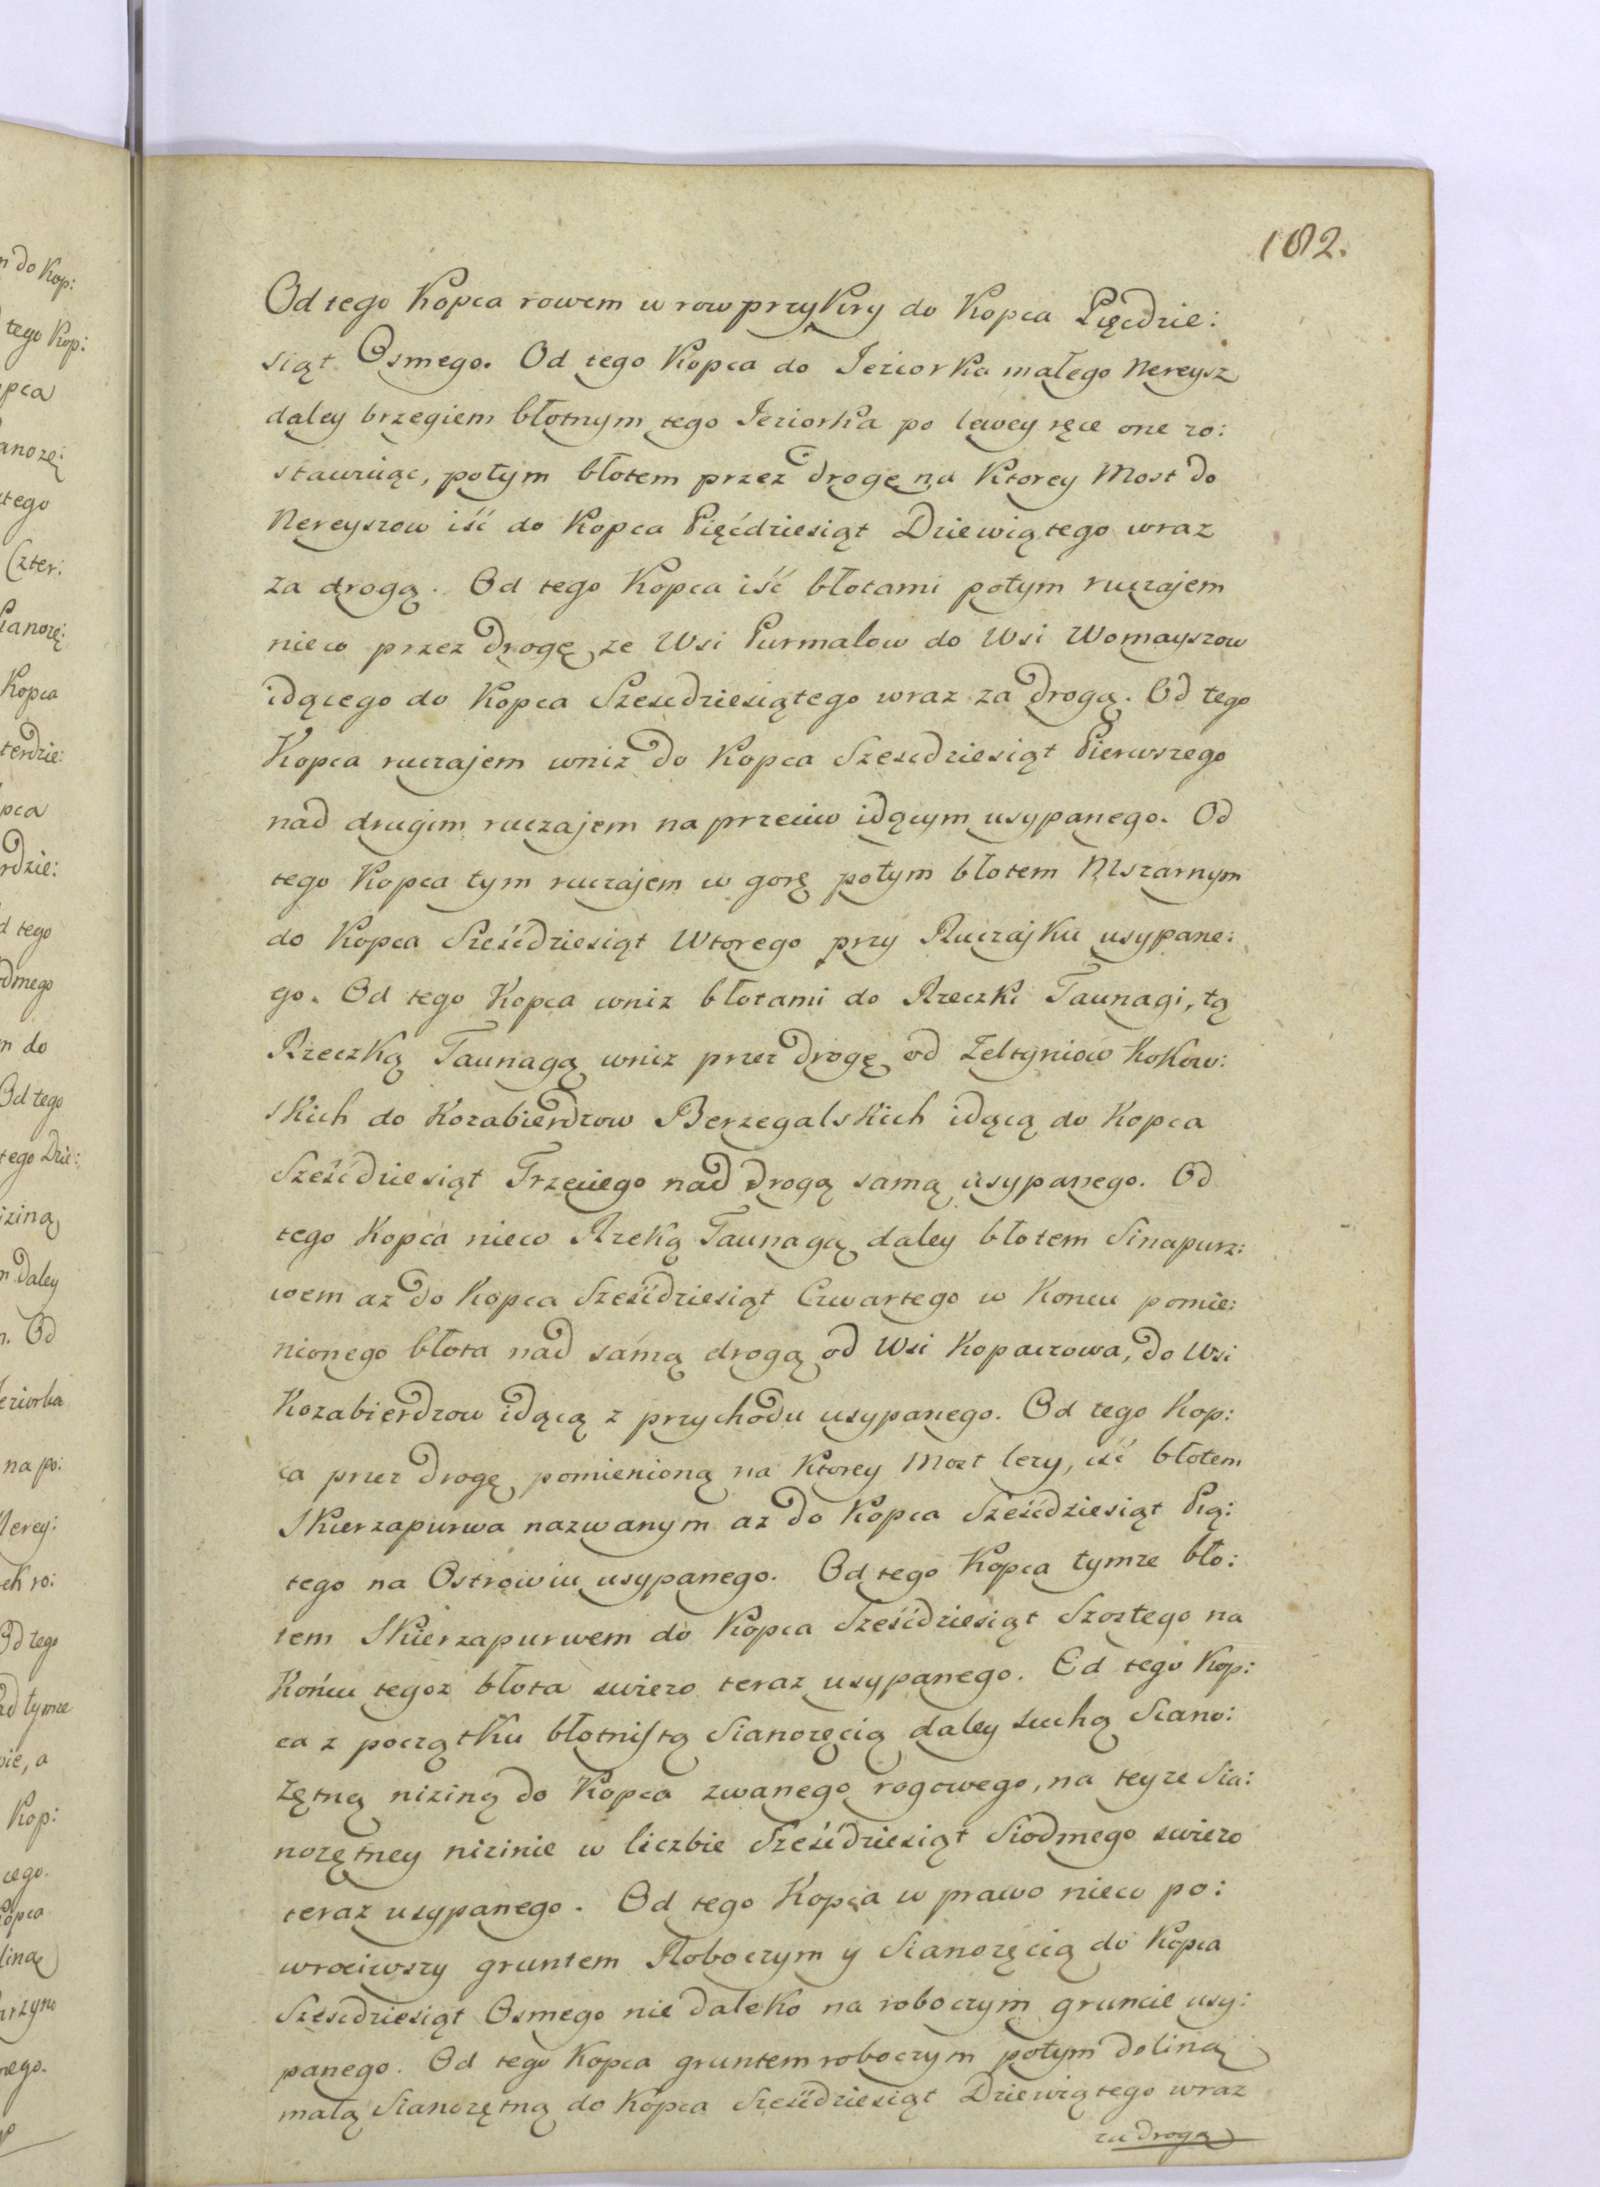 182.
Od tego Kopca rowem w row przykry do Kopca Pięcdzie:
siąt Osmego. Od tego Kopca do Jeziorka małego Nereysz
daley brzegiem błotnym tego Jeziorka po lewey ręce one zo:
stawuiąc, potym błotem przez drogę na Ktorey Most do
Nereyszow iść do Kopca Pięćdziesiąt Dziewiątego wraz
za drogą. Od tego Kopca iść błotami potym ruczajem
nieco przez drogę ze Wsi Purmalow do Wsi Womayszow
idącego do Kopca Szescdziesiątego wraz za drogą. Od tego
Kopca ruczajem wniz do Kopca Szescdziesiąt Pierwszego
nad drugim ruczajem na przeciw idącym usypanego. Od
tego Kopca tym ruczajem w gorę potym błotem Mszarnym
do Kopca Sześćdziesiąt Wtorego przy Ruczajku usypane:
go. Od tego Kopca wniz błotami do Rzeczki Taunagi, tą
Rzeczką Taunagą wniz przez drogę od Zeltyniow Kokow:
skich do Kozabierdzow Berzegalskich idącą do Kopca
Sześćdziesiąt Trzeciego nad drogą samą usypanego. Od
tego Kopca nieco Rzeką Taunagą daley błotem Sinapurz:
wem az do Kopca Sześćdziesiąt Czwartego w Koncu pomie:
nionego błota nad samą drogą od Wsi Kopaczowa, do Wsi
Kozabierdzow idącą z przychodu usypanego. Od tego Kop:
ca przez drogę pomienioną na Ktorey Most lezy, iść błotem
Skierzapurwa nazwanym az do Kopca Sześćdziesiąt Pią:
tego na Ostrowiu usypanego. Od tego Kopca tymze bło:
tem Skierzapurwem do Kopca Sześćdziesiąt Szostego na
Końcu tegoz błota swiezo teraz usypanego. Od tego Kop:
ca z początku błotnistą Sianozęcią daley suchą Siano:
zętną niziną do Kopca zwanego rogowego, na teyze Sia:
nozętney nizinie w liczbie Sześćdziesiąt Siodmego swiezo
teraz usypanego. Od tego Kopca w prawo nieco po:
wrociwszy gruntem Roboczym y Sianozęcią do Kopca
Szescdziesiąt Osmego nie daleko na roboczym gruncie usy:
panego. Od tego Kopca gruntem roboczym potym doliną
małą Sianozętną do Kopca Sześćdziesiąt Dziewiątego wraz
za drogą